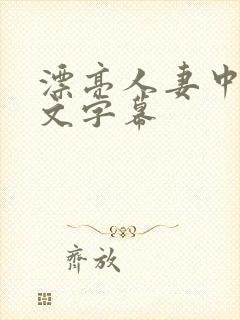 漂亮人妻中
文字幕
齊放